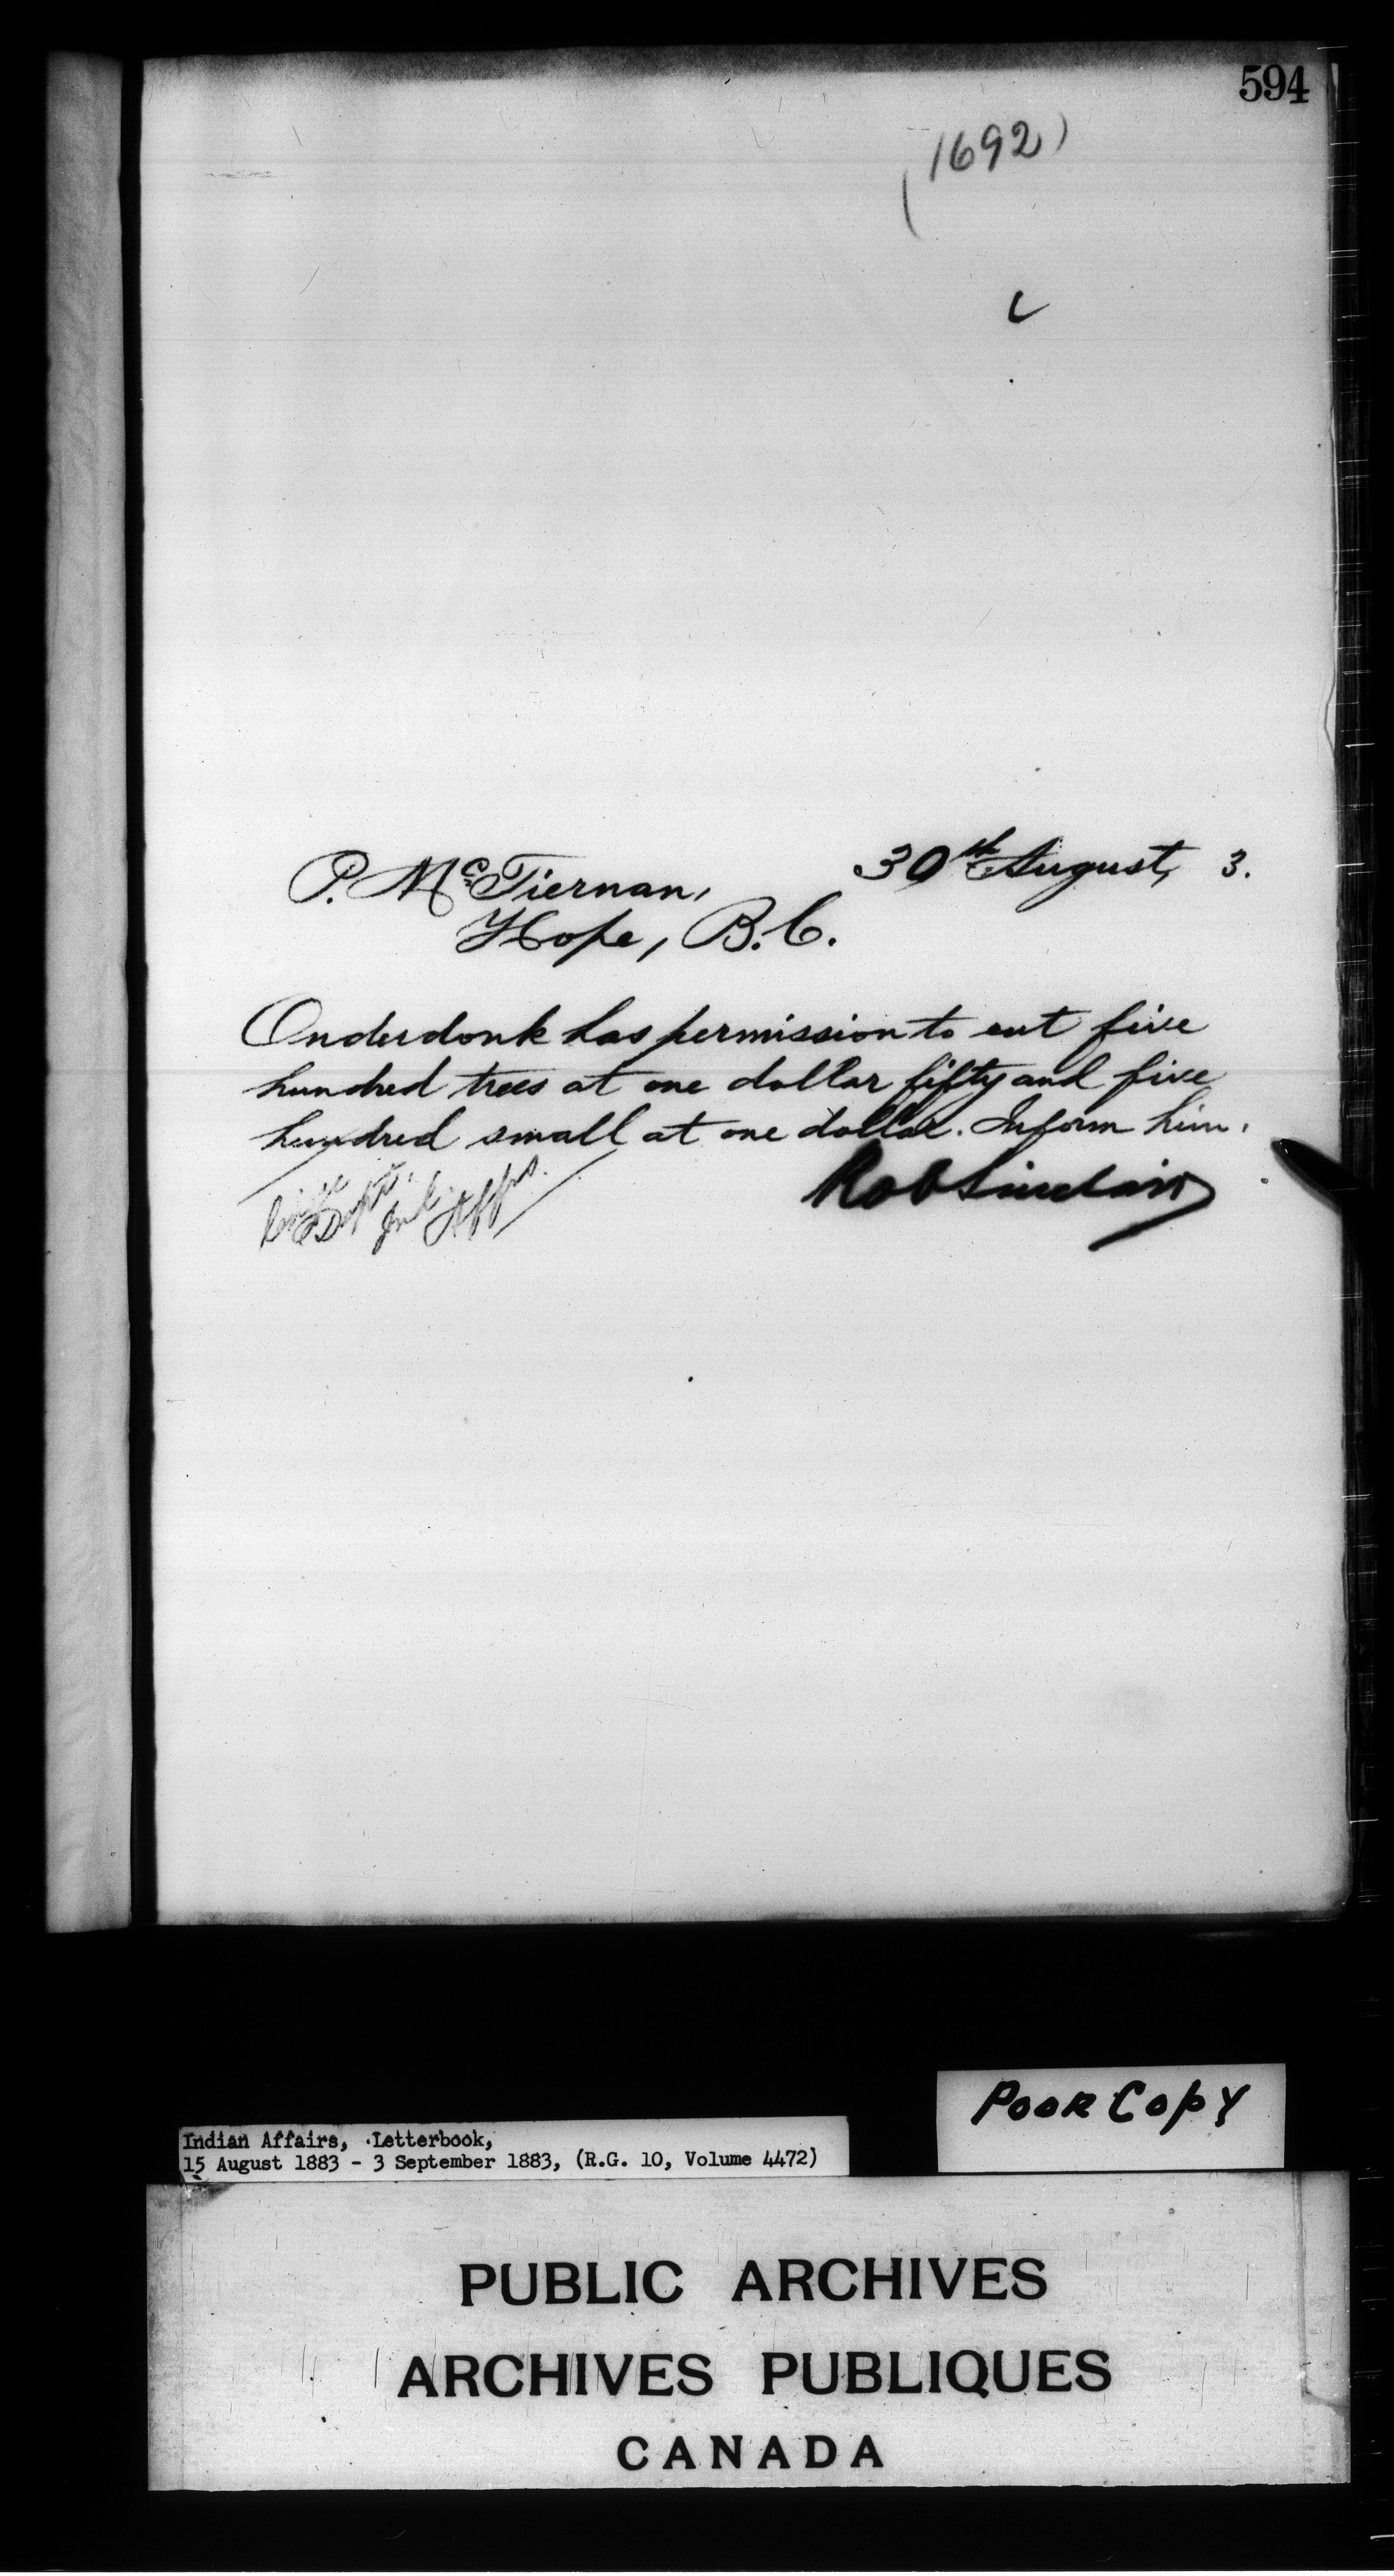 594
(1692)
30th August, 3.
P. McTiernan,
Hope, B.C.
Onderdonk has permission to cut five
hundred trees at one dollar fifty and five
hundred small at one dollar. Inform him.
Rob Sinclair
Dept. Ind. Affrs.
Poor Copy
Indian Affairs, Letterbook,
15 August 1883 - 3 September 1883, (R.G. 10, Volume 4472)
PUBLIC ARCHIVES
ARCHIVES PUBLIQUES
CANADA